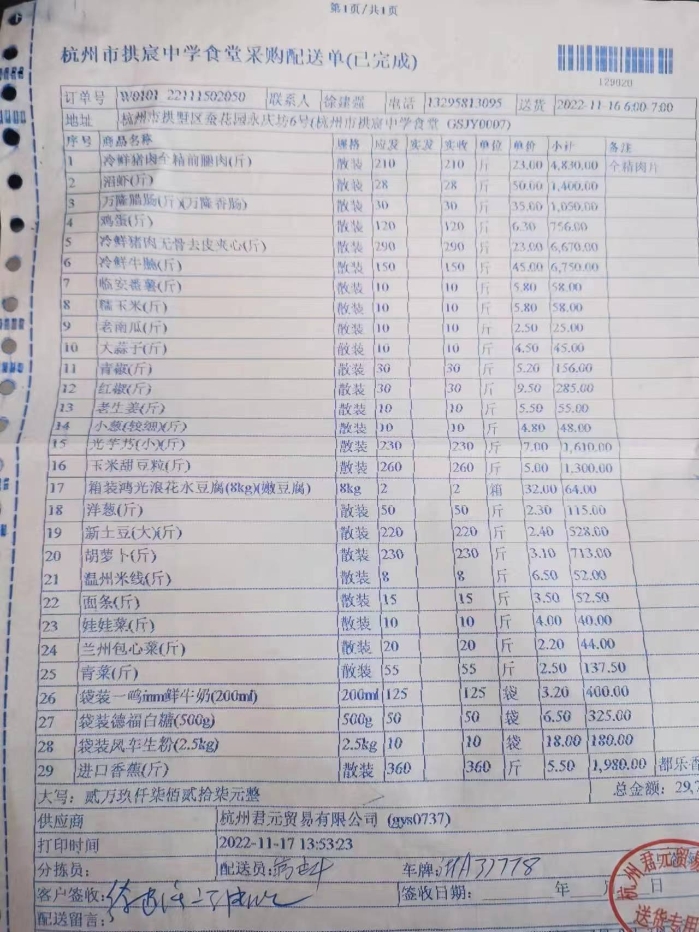 第1页/共1页
杭州市拱宸中学食堂采购配送单(已完成)
129020
订单号 W0101 22111502050 联系人 徐建强 电话 13295813095 送货 2022-11-16 6:00-7:00
地址 杭州市拱墅区蚕花园永庆坊6号(杭州市拱宸中学食堂 GSJY0007)
序号 商品名称 规格 应发 实发 实收 单位 单价 小计 备注
1 冷鲜猪肉全精前腿肉(斤) 散装 210 210 斤 23.00 4,830.00 全精肉片
2 沼虾(斤) 散装 28 28 斤 50.00 1,400.00
3 万隆腊肠(斤)(万隆香肠) 散装 30 30 斤 35.00 1,050.00
4 鸡蛋(斤) 散装 120 120 斤 6.30 756.00
5 冷鲜猪肉无骨去皮夹心(斤) 散装 290 290 斤 23.00 6,670.00
6 冷鲜牛腩(斤) 散装 150 150 斤 45.00 6,750.00
7 临安番薯(斤) 散装 10 10 斤 5.80 58.00
8 糯玉米(斤) 散装 10 10 斤 5.80 58.00
9 老南瓜(斤) 散装 10 10 斤 2.50 25.00
10 大蒜子(斤) 散装 10 10 斤 4.50 45.00
11 青椒(斤) 散装 30 30 斤 5.20 156.00
12 红椒(斤) 散装 30 30 斤 9.50 285.00
13 老生姜(斤) 散装 10 10 斤 5.50 55.00
14 小葱(较细)(斤) 散装 10 10 斤 4.80 48.00
15 光芋艿(小)(斤) 散装 230 230 斤 7.00 1,610.00
16 玉米甜豆粒(斤) 散装 260 260 斤 5.00 1,300.00
17 箱装鸿光浪花水豆腐(8kg)(嫩豆腐) 8kg 2 2 箱 32.00 64.00
18 洋葱(斤) 散装 50 50 斤 2.30 115.00
19 新土豆(大)(斤) 散装 220 220 斤 2.40 528.00
20 胡萝卜(斤) 散装 230 230 斤 3.10 713.00
21 温州米线(斤) 散装 8 8 斤 6.50 52.00
22 面条(斤) 散装 15 15 斤 3.50 52.50
23 娃娃菜(斤) 散装 10 10 斤 4.00 40.00
24 兰州包心菜(斤) 散装 20 20 斤 2.20 44.00
25 青菜(斤) 散装 55 55 斤 2.50 137.50
26 袋装一鸣imm鲜牛奶(200ml) 200ml 125 125 袋 3.20 400.00
27 袋装德福白糖(500g) 500g 50 50 袋 6.50 325.00
28 袋装风车生粉(2.5kg) 2.5kg 10 10 袋 18.00 180.00
29 进口香蕉(斤) 散装 360 360 斤 5.50 1,980.00 都乐香
大写: 贰万玖仟柒佰贰拾柒元整 总金额: 29,7
供应商 杭州君元贸易有限公司 (gys0737)
打印时间 2022-11-17 13:53:23
分拣员: 配送员: 车牌: 浙A37778
客户签收: 签收日期: 年 月 日
配送留言:
杭州君元贸易
送货专用